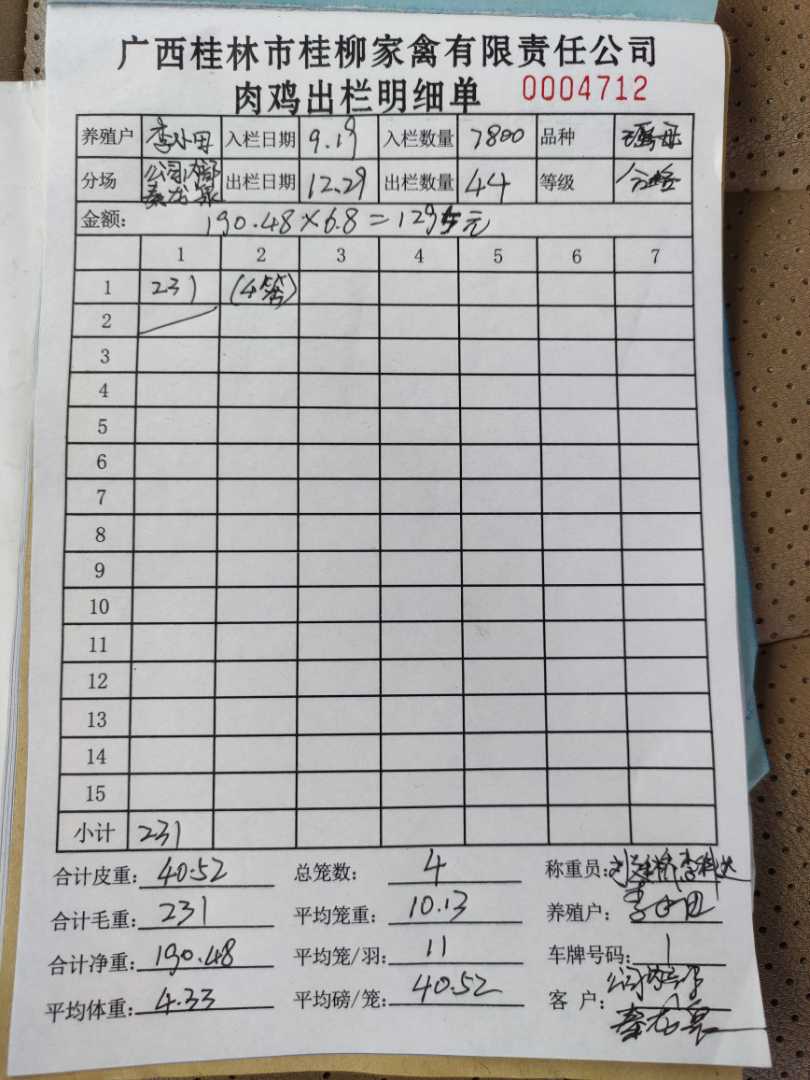 广西桂林市桂柳家禽有限责任公司
肉鸡出栏明细单 0004712
养殖户 李小田 入栏日期 9.19 入栏数量 7800 品种
分场 公司内部 秦龙泉 出栏日期 12.29 出栏数量 44 等级
金额: 190.48×6.8=1295元
1 2 3 4 5 6 7
1 231 (4笼)
2
3
4
5
6
7
8
9
10
11
12
13
14
15
小计 231
合计皮重: 40.52 总笼数: 4 称重员:
合计毛重: 231 平均笼重: 10.13 养殖户: 李小田
合计净重: 190.48 平均笼/羽: 11 车牌号码: 1
平均体重: 4.33 平均磅/笼: 40.52 客户: 公司内部
秦龙泉